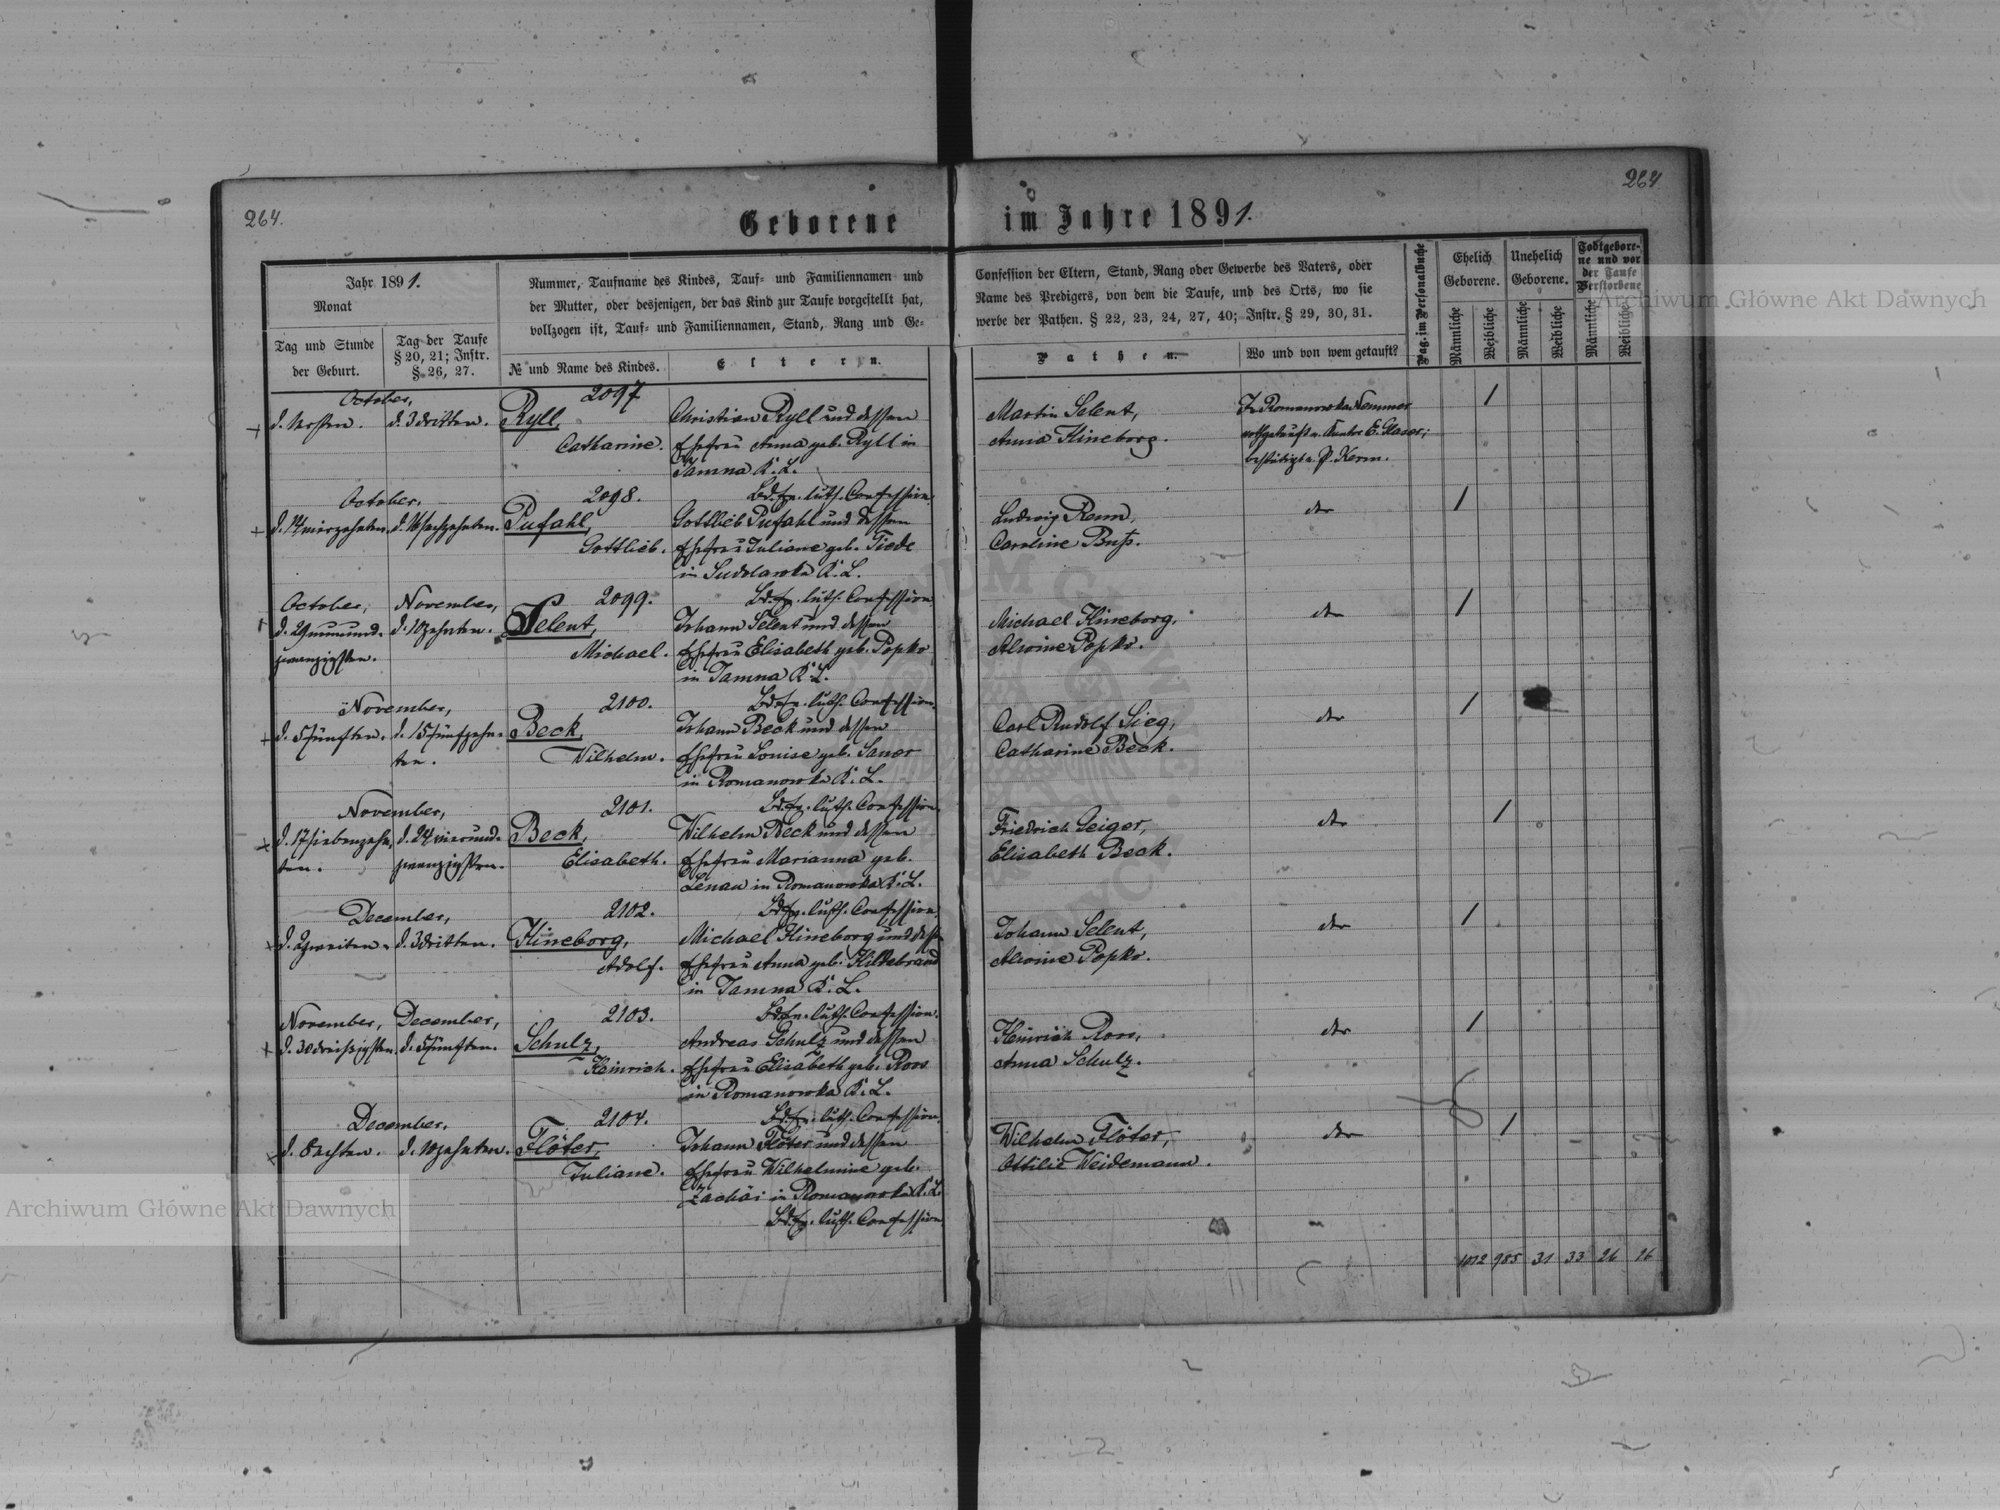 264.
264
Geborene im Jahre 1891.
Jahr 1891.
Monat
Tag und Stunde
der Geburt.
Tag der Taufe
§ 20, 21; Instr.
§. 26, 27.
Nummer, Taufname des Kindes, Tauf- und Familiennamen und
der Mutter, oder desjenigen, der das Kind zur Taufe vorgestellt hat,
vollzogen ist, Tauf- und Familiennamen, Stand, Rang und Ge-
№ und Name des Kindes.
Eltern.
Confession der Eltern, Stand, Rang oder Gewerbe des Vaters, oder
Name des Predigers, von dem die Taufe, und des Orts, wo sie
werbe der Pathen. § 22, 23, 24, 27, 40; Instr. § 29, 30, 31.
Pathen.
Wo und von wem getauft?
Pag. im Personalbuche
Ehelich
Geborene.
Unehelich
Geborene.
Todtgebore-
ne und vor
der Taufe
Verstorbene
Männliche
Weibliche
Männliche
Weibliche
Männliche
Weibliche
October,
d. 1 ersten. d. 3 dritten.
2097
Ryll,
Catharine.
Christian Ryll und dessen
Ehefrau Anna geb. Ryll in
Tamna K. L.
Bd. ev. luth. Confession
Martin Selent,
Anna Hineborg.
In Romanowka
nothgetauft v. Cantor E. Glaser;
bestätigt v. P. Kerm.
1
October,
d. 14 vierzehnten. d. 16 sechzehnten.
2098.
Pufahl,
Gottlieb.
Gottlieb Pufahl und dessen
Ehefrau Juliane geb. Tiede
in K. L.
Bd. ev. luth. Confession
Ludwig Renn,
Caroline Buss.
dto
1
October, November,
d. 29 neunund- d. 10 zehnten.
zwanzigsten.
2099.
Selent,
Michael.
Johann Selent und dessen
Ehefrau Elisabeth geb. Popko
in Tamna K. L.
Bd. ev. luth. Confession.
Michael Hineborg,
Alwine Popko.
dto
1
November,
d. 5 fünften. d. 15 fünfzehn-
ten.
2100.
Beck,
Wilhelm.
Johann Beck und dessen
Ehefrau Louise geb. Sauer
in Romanowka K. L.
Bd. ev. luth. Confession
Carl Rudolf Sieg,
Catharine Beck.
dto
1
November,
d. 17 siebenzehn- d. 24 vierund-
ten. zwanzigsten.
2101.
Beck,
Elisabeth.
Wilhelm Beck und dessen
Ehefrau Marianna geb.
Lenau in Romanowka K. L.
Bd. ev. luth. Confession.
Friedrich Geiger,
Elisabeth Beck.
dto
1
December,
d. 2 zweiten. d. 3 dritten.
2102.
Hineborg,
Adolf.
Michael Hineborg und dess.
Ehefrau Anna geb. Hildebrand
in Tamna K. L.
Bd. ev. luth. Confession.
Johann Selent,
Alwine Popko.
dto
1
November, December,
d. 30 dreißigsten. d. 5 fünften.
2103.
Schulz,
Heinrich.
Andreas Schulz und dessen
Ehefrau Elisabeth geb. Roos
in Romanowka K. L.
Bd. ev. luth. Confession.
Heinrich Roos,
Anna Schulz.
dto
1
December,
d. 8 achten. d. 10 zehnten.
2104.
Flöter,
Juliane.
Johann Flöter und dessen
Ehefrau Wilhelmine geb.
Zachäi in Romanowka K. L.
Bd. ev. luth. Confession
Wilhelm Flöter,
Ottilie Weidemann.
dto
1
1012 985 31 33 26 16
Archiwum Główne Akt Dawnych
Archiwum Główne Akt Dawnych